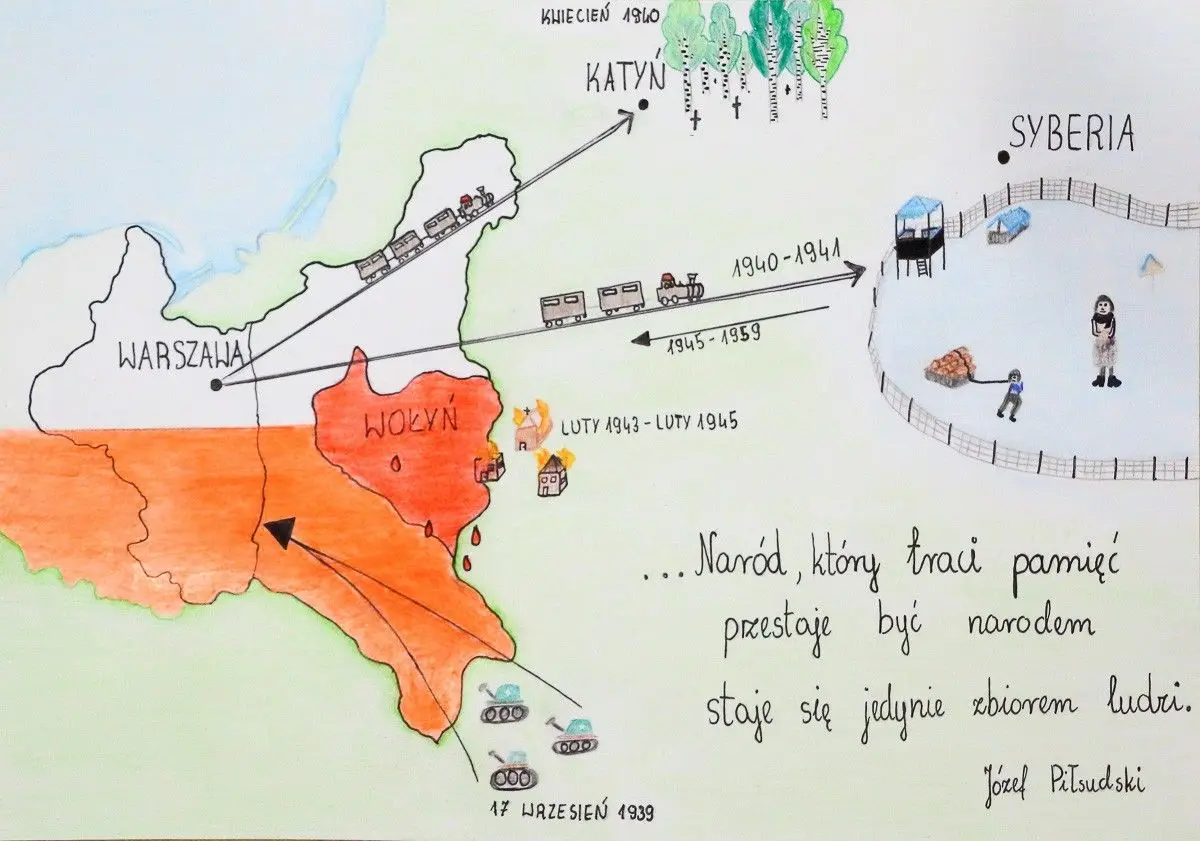 KWIECIEŃ 1940
KATYŃ
SYBERIA
1940-1941
1945-1959
WARSZAWA
WOŁYŃ
LUTY 1943 - LUTY 1945
...Naród, który traci pamięć
przestaje być narodem
staje się jedynie zbiorem ludzi.
Józef Piłsudski
17 WRZESIEŃ 1939